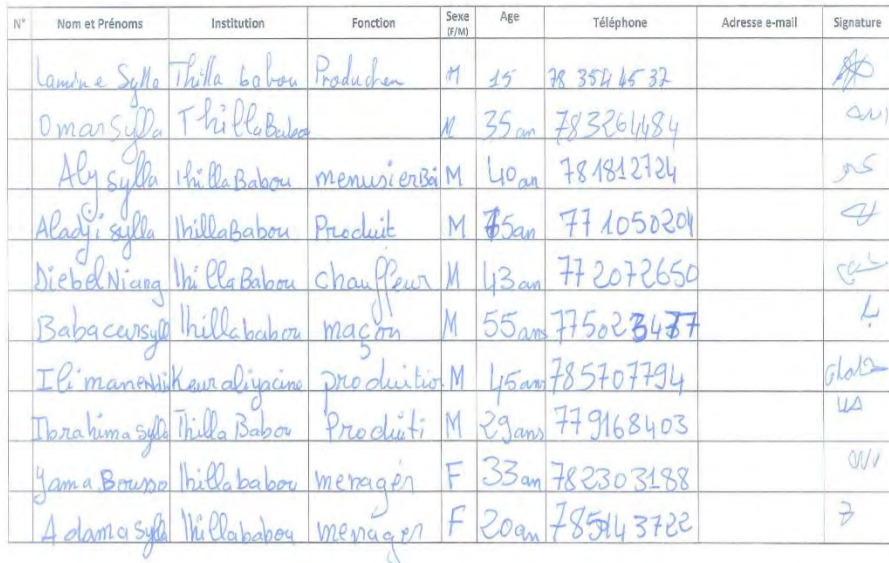 N° Nom et Prénoms Institution Fonction Sexe (F/M) Age Téléphone Adresse e-mail Signature
Lamine Sylla Thilla babou Producteu M 15 78 354 45 32
Omar Sylla ThillaBabo M 35 an 783264484
Aly Sylla ThillaBabou menusierBoi M 40 an 781812724
Aladji sylla ThillaBabou Produit M 75an 77 1050204
Diebel Niang ThillaBabou chauffeur M 43 an 772072650
Babacar sylla Thillababou maçon M 55 ans 775023477
Keur aliyacine produitio M 45 ans 785707794
Ibrahima Sylla Thilla Babou Produiti M 29 ans 779168403
Yama Bousso Thillababou menagèr F 33 an 782303188
Adama Sylla Thillababou menager F 20an 785143722